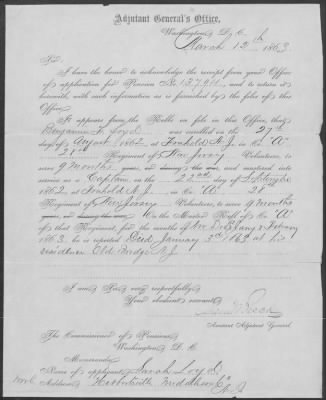 Adjutant General's Office,
Washington, D. C.
March 12th 1863
Sir,
I have the honor to acknowledge the receipt from your Office
of application for Pension No. 13.794, and to return it
herewith, with such information as is furnished by the files of this
Office.
It appears from the Rolls on file in this Office, that
Benjamin F. Loyd was enrolled on the 27th
day of August 1862, at Freehold N. J. in Co. "A"
28th Regiment of New Jersey Volunteers, to
serve 9 months and mustered into
service as a Captain on the 22nd day of September
1862, at Freehold N. J. in Co. "A" 28
Regiment of New Jersey Volunteers, to serve 9 months
On the Muster Roll of Co. "A"
of that Regiment, for the months of Nov. Dec. Jany. & February
1863, he is reported Died January 3rd 1863 at his
residence Old Bridge N. J.
I am, Sir, very respectfully,
Your obedient servant,
Assistant Adjutant General.
The Commissioner of Pensions,
Washington, D. C.
Memoranda.
Name of applicant, Sarah Loyd
Address, Middlesex Co.
N. J.